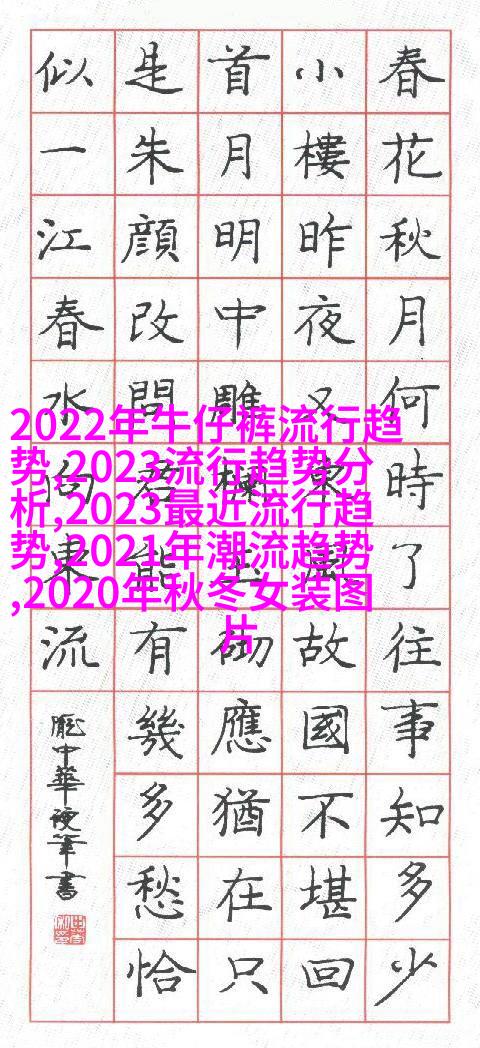 春花秋月何時了往事知多少
小樓昨夜又東風故國不堪回
首月明中雕欄玉砌應猶在只
是朱顔改問君能有幾多愁恰
似一江春水向東流
龐中華硬筆書
2022年牛仔裤流行趋
势,2023流行趋势分
析,2023最近流行趋
势,2021年潮流趋势
,2020年秋冬女装图
片